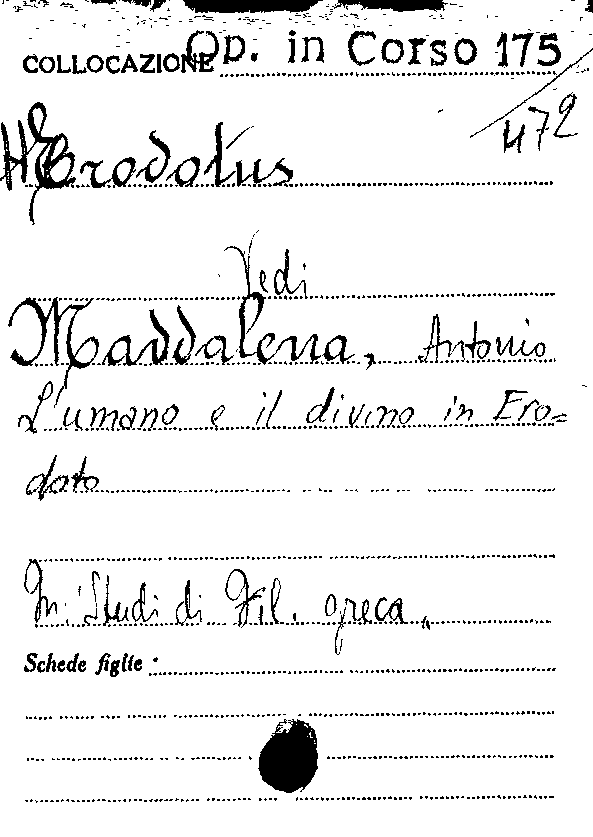 COLLOCAZIONE Op. in Corso 175
472
Herodotus
Vedi
Maddalena, Antonio
L'umano e il divino in Ero=
doto
In: "Studi di Fil. greca"
Schede figlie: